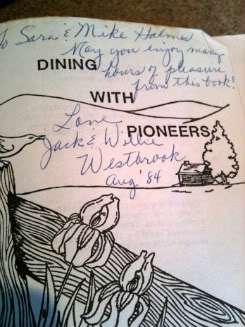 To Sara & Mike Holmes
May you enjoy many
DINING hours of pleasure
from this book!
WITH
Love,
PIONEERS
Jack & Willie
Westbrook
Aug '84